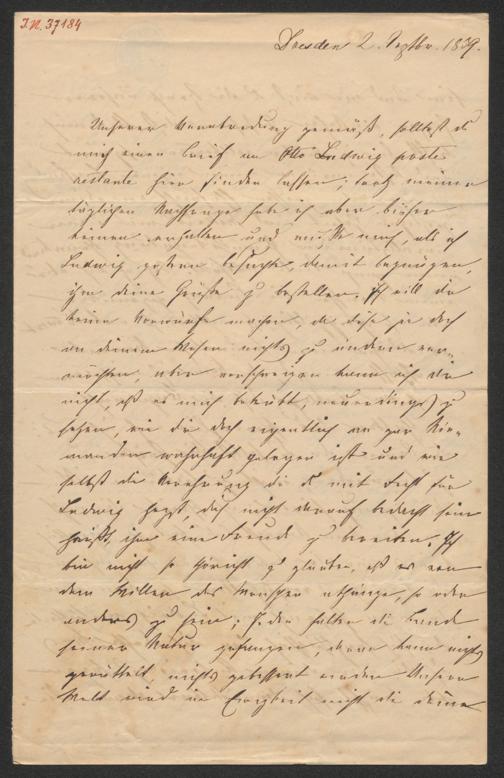 I.N. 37184
Dresden 2. Septbr. 1859.
Unserer Verabredung gemäß, solltest du
mich einen Brief an Otto Ludwig poste
restante hier finden lassen; trotz meiner
täglichen Nachfrage habe ich aber bisher
keinen erhalten und mußte mich, als ich
Ludwig gestern besuchte, damit begnügen,
ihm deine Grüße zu bestellen. Ich will dir
keine Vorwürfe machen, da diese ja doch
an deinem Wesen nichts zu ändern ver-
möchten, aber verschweigen kann ich dir
nicht, daß es mich betrübt, neuerdings zu
sehen, wie dir doch eigentlich an gar Nie-
manden wahrhaft gelegen ist und wie
selbst die Verehrung die du mit Recht für
Ludwig hegst, dich nicht darauf bedacht sein
heißt, ihm eine Freude zu bereiten. Ich
bin nicht so thöricht zu glauben, daß es von
dem Willen des Menschen abhänge, so oder
anders zu sein; Jeden halten die Bande
seiner Natur gefangen, daran kann nichts
gerüttelt, nichts gebessert werden. Unsere
Welt wird in Ewigkeit nicht die deine